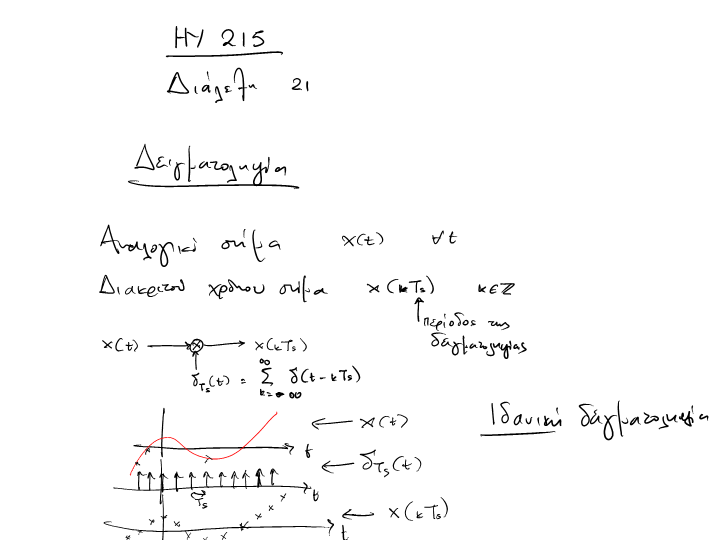 ΗΥ 215
Διάλεξη 21
Δειγματοληψία
Αναλογικό σήμα x(t) ∀t
Διακριτού χρόνου σήμα x(kTs) k∈ℤ
περίοδος της
δειγματοληψίας
x(t) → ⊗ → x(kTs)
δTs(t) = ∑ δ(t-kTs)
k=-∞ ∞
Ιδανική δειγματοληψία
t ← x(t)
Ts t ← δTs(t)
t ← x(kTs)